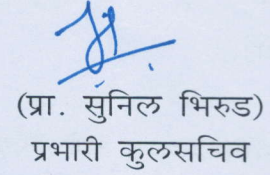 (प्रा. सुनिल भिरुड)
प्रभारी कुलसचिव